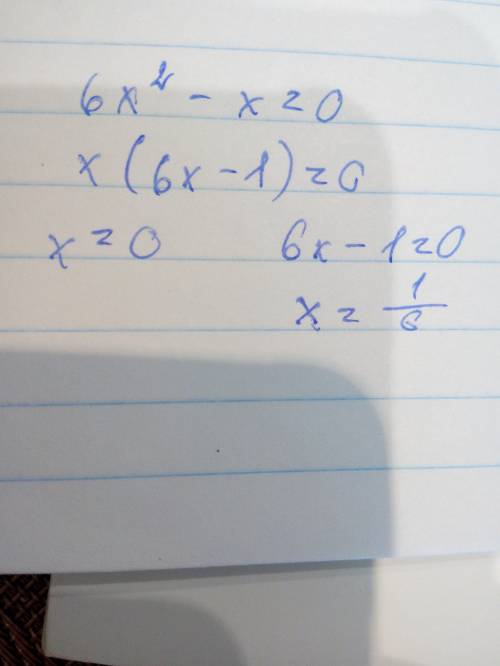 6x² - x = 0
x (6x - 1) = 0
x = 0 6x - 1 = 0
x = 1/6